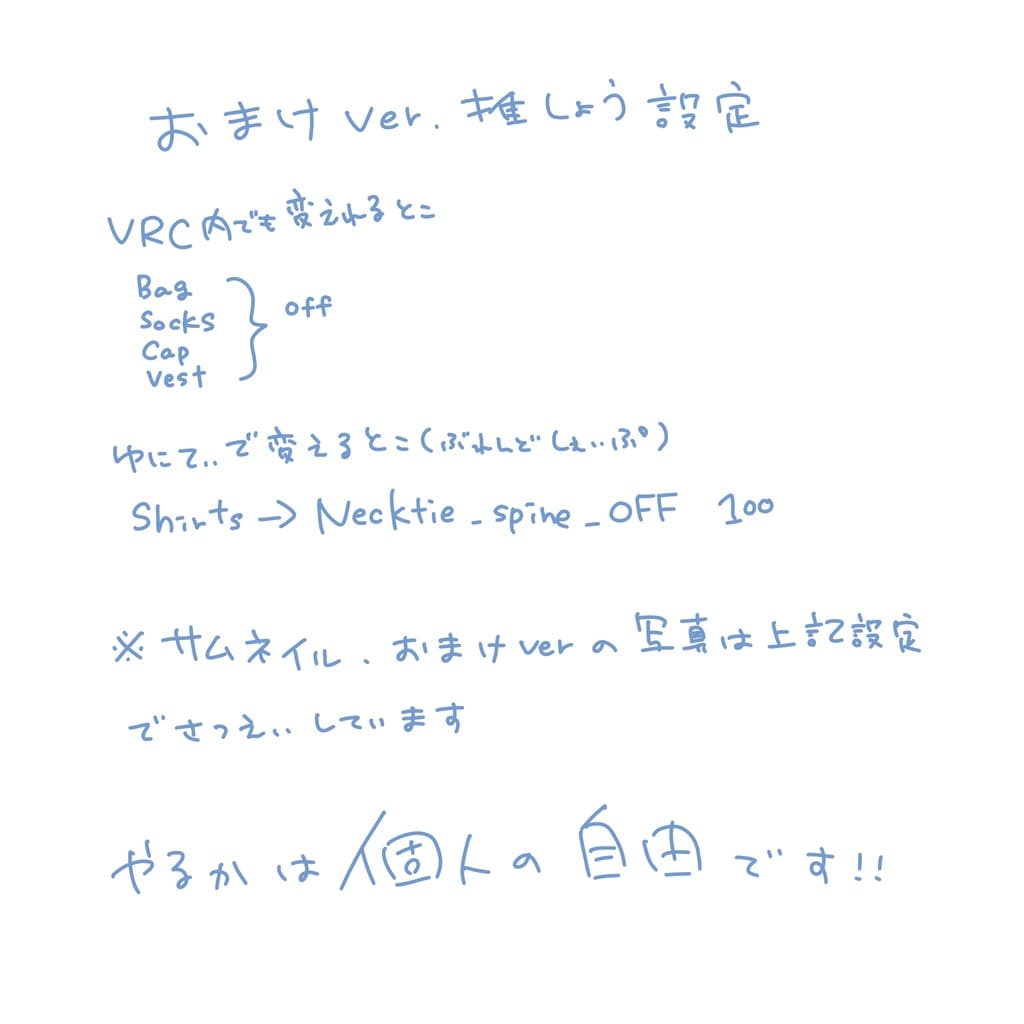 おまけver.推しょう設定
VRC内でも変えれるとこ
Bag
Socks
Cap
Vest
off
ゆにてぃで変えるとこ(ぶれんどしぇいぷ)
Shirts→Necktie_spine_OFF 100
※サムネイル、おまけverの写真は上記設定
でさつえいしています
やるかは個人の自由です!!